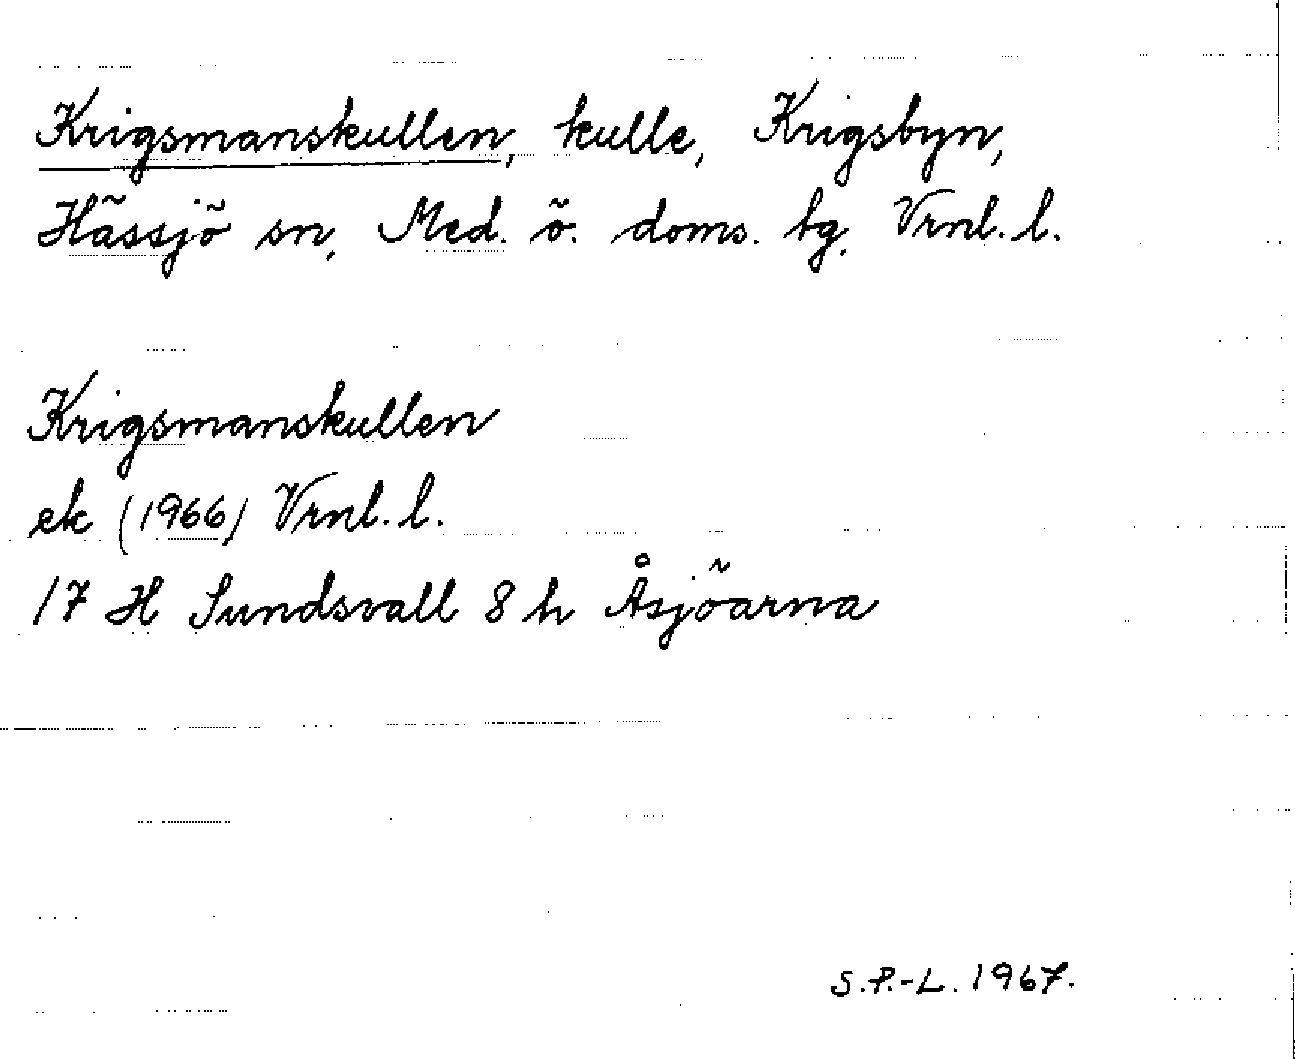 Krigsmanskullen, kulle, Krigsbyn,
Hässjö sn, Med. ö. doms. tg, Vrnl. l.
Krigsmanskullen
ek (1966) Vrnl. l.
17 H Sundsvall 8 h Åsjöarna
S.P.-L. 1967.